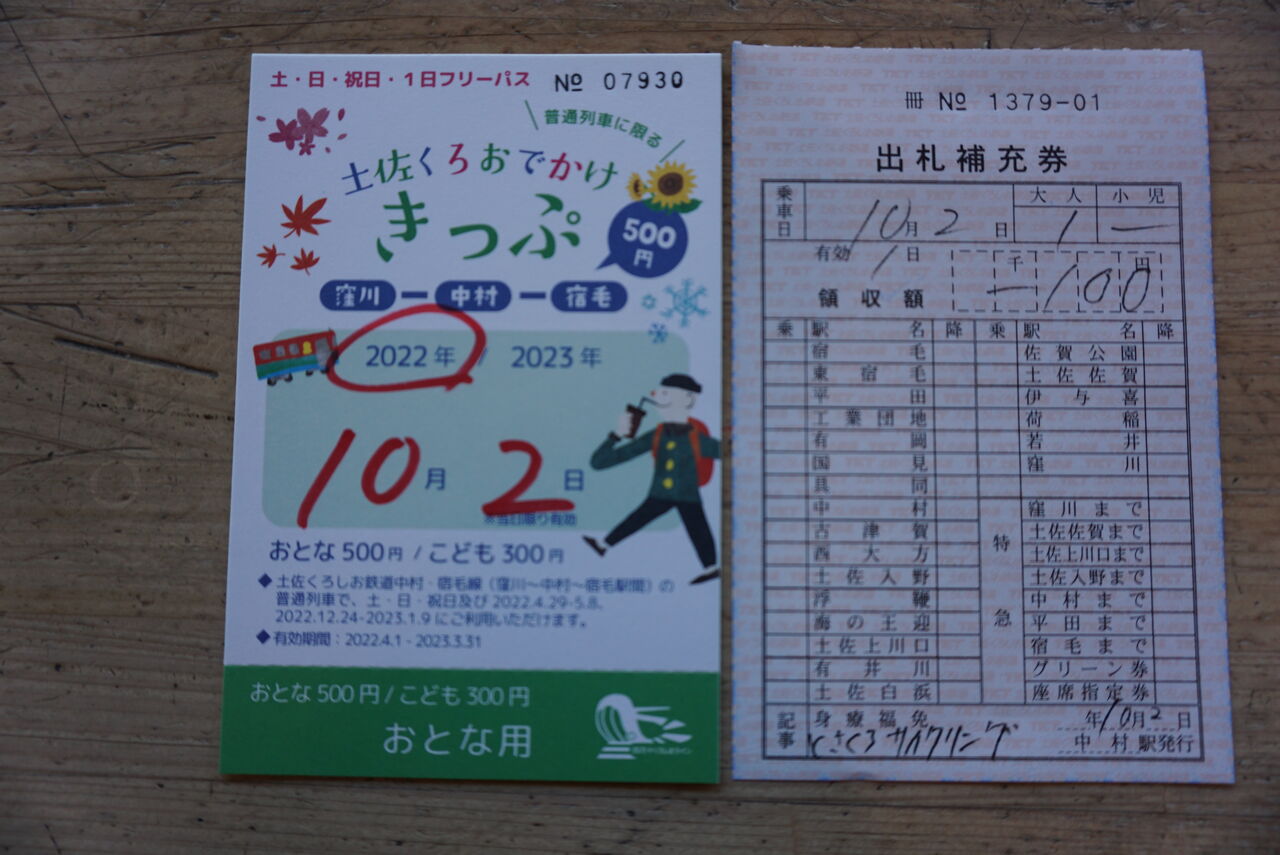 土・日・祝日・1日フリーパス
№ 07930
普通列車に限る
土佐くろおでかけ
きっぷ
500
円
窪川ー中村ー宿毛
2022年 / 2023年
10月 2日
※当日限り有効
おとな500円 / こども300円
◆土佐くろしお鉄道中村・宿毛線(窪川〜中村〜宿毛駅間)の
普通列車で、土・日・祝日及び2022.4.29-5.8、
2022.12.24-2023.1.9にご利用いただけます。
◆有効期間:2022.4.1 - 2023.3.31
おとな500円 / こども300円
おとな用
冊 № 1379-01
出札補充券
乗車日 10月2日 大人 小児
1 —
有効 1日 千 円
領収額 —100
乗 駅名 降 乗 駅名 降
宿毛 佐賀公園
東宿毛 土佐佐賀
平田 伊与喜
工業団地 荷稲
有岡 若井
国見 窪川
具同
中村 窪川まで
古津賀 特 土佐佐賀まで
西大方 土佐上川口まで
土佐入野 土佐入野まで
浮鞭 中村まで
海の王迎 急 平田まで
土佐上川口 宿毛まで
有井川 グリーン券
土佐白浜 座席指定券
記事 身療福免 年10月2日
とさくろサイクリング 中村駅発行